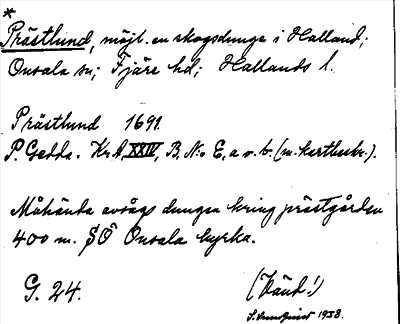 *
Prästlund, möjl. en skogsdunge i Halland;
Onsala sn; Fjäre hd; Hallands l.
Prästlund 1691.
P. Gedda. Kr.A. XXIV, B. N:o E, a o. b. (m. kartbeskr.).
Måhända avsågs dungen kring prästgården
400 m. SÖ Onsala kyrka.
G. 24.
(Vänd!)
1938.